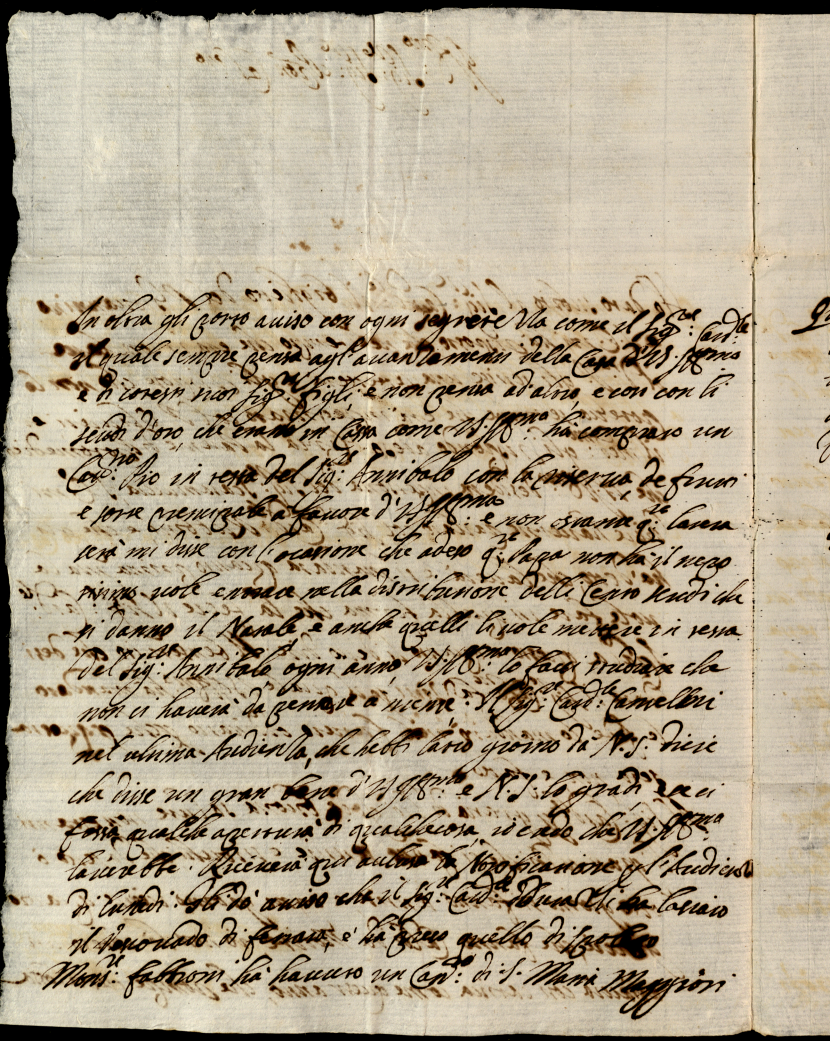 In oltra gli porto auiso con ogni segretezza come il Sig.re Card.le
il quale sempre pensa agl'auanzamenti della Casa d'VS Ill.ma
e di cotesti suoi Sig.ri figli, e non pensa ad'altro, e con li
scudi d'oro, che erano in Cassa come VS Ill.ma hà comprato un
in testa del Sig.r Annibale con la riserua de frutti
e a fauore d'VS Ill.ma: e non ostante q.to
mi disse con l'occasione che adesso q.to Papa non hà il nepo
uole entrare nella distributione delli Cento scudi che
si danno il Natale, e anche quelli li uole mettere in testa
del Sig.r Annibale ogni anno, VS Ill.ma lo facci studiare che
non ci hauerà da pensare à niente. Il Sig.r Card.le
nel ultima Audienza, che hebbi l'altro giorno da N.S. dice
che disse un gran bene d'VS Ill.ma e N.S. lo gradì, e se ci
fosse qualche apertura di qualche cosa, io credo che VS Ill.ma
l'hauerebbe. Riceuerà qui la Notificatione p l'Audienza
di lunedì. Gli dò auiso che il Sig.r Card.le hà lasciato
il Vescouado di ferrara, e hà preso quello di
Mons.re Fabbroni hà hauuto un Can.to di S. Maria Maggiori